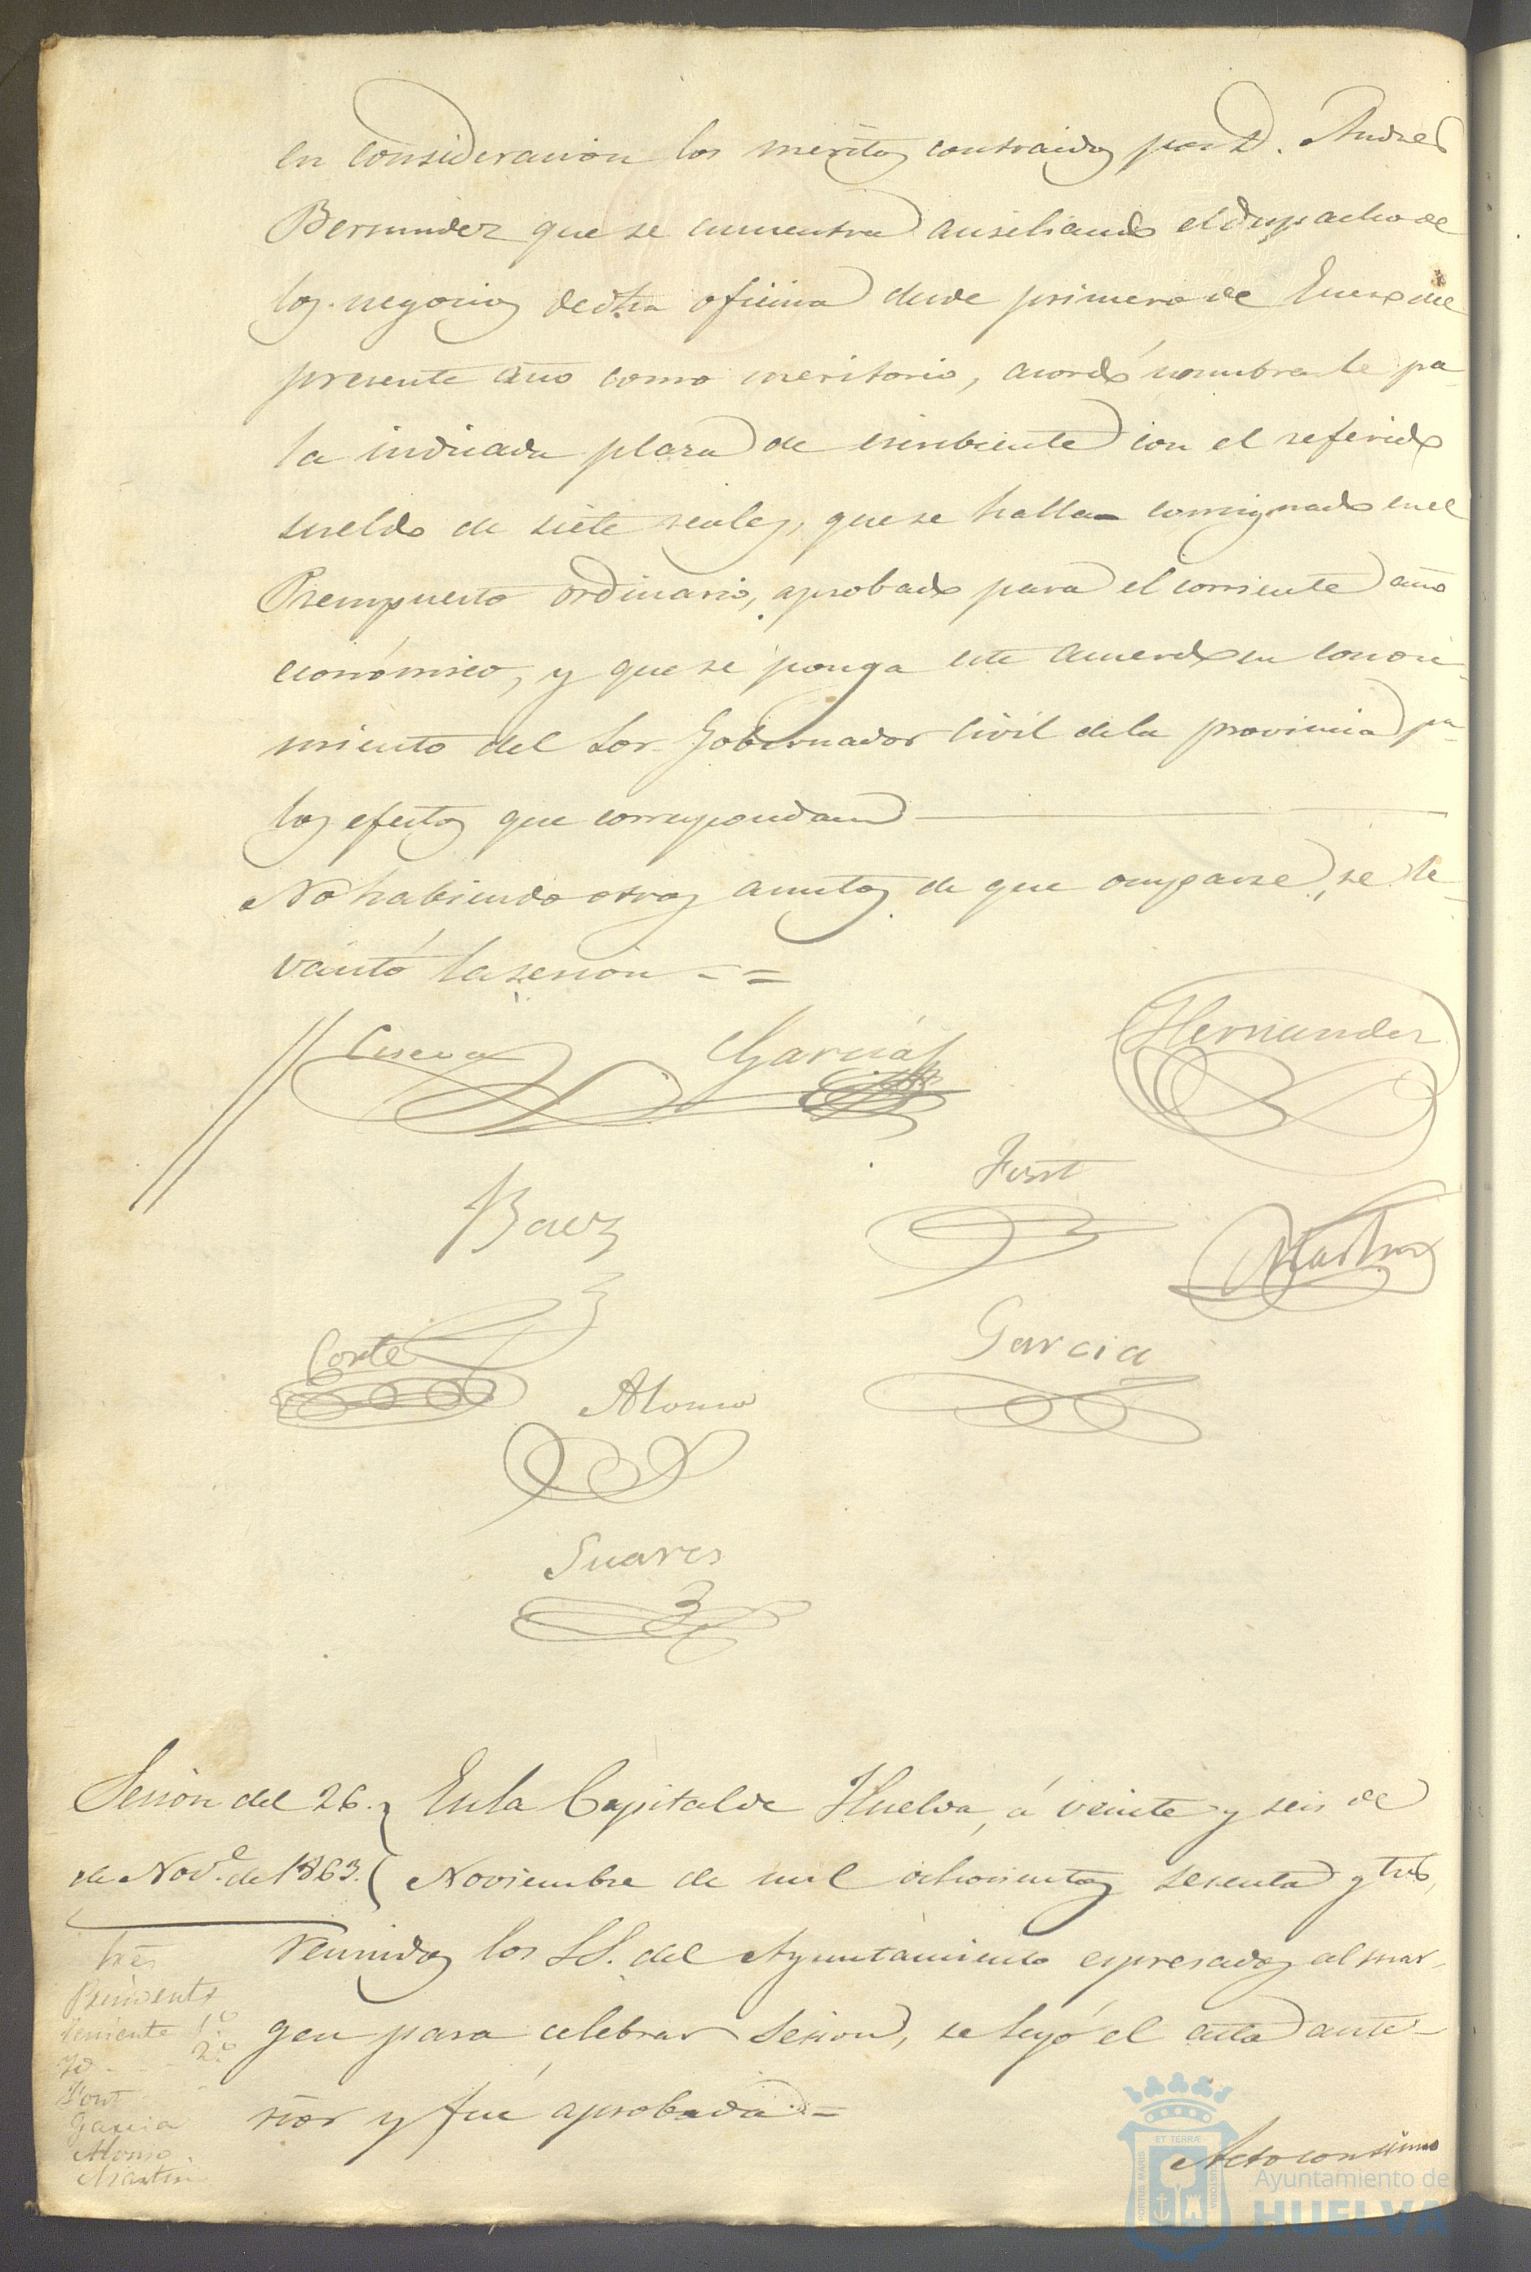 en consideracion los meritos contraidos por D. Andres
Bermudez que se encuentra ausiliando el despacho de
los negocios de dha oficina desde primero de Enero del
presente año como meritorio, acordó nombrarle pa
la indicada plaza de escribiente con el referido
sueldo de siete reales, que se halla consignado en el
Presupuesto ordinario, aprobado para el corriente año
económico, y que se ponga este acuerdo en conoci-
miento del Sor. Gobernador Civil de la provincia pa
los efectos que correspondan
No habiendo otros asuntos de que ocuparse, se le-
vantó la sesion - =
García
Hernandez
Font
Baez
Martin
Corte
Garcia
Alonso
Suares
Sesion del 26.
de Nove. de 1863.
En la Capital de Huelva, á veinte y seis de
Noviembre de mil ochocientos sesenta y tres,
reunidos los SS. del Ayuntamiento espresados al mar-
gen para celebrar Sesion, se leyó el acta ante-
rior y fue aprobada. =
Sres
Presidente
Teniente 1.º
Id - - - 2.º
Font
Garcia
Alonso
Martin
Acto continuo
PORTUS MARIS
ET TERRÆ
CUSTODIA
Ayuntamiento de
HUELVA